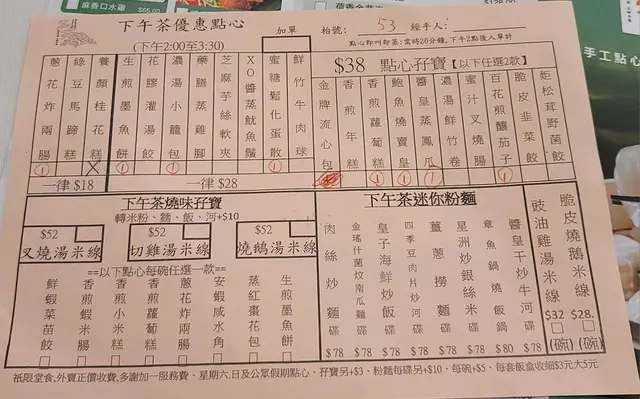 麻香口水雞 $65.00
下午茶優惠點心
(下午2:00至3:30)
加單
枱號: 53 經手人:
點心即叫即蒸:需時20分鐘,下午2點後人單計
手工點心
蔥花炸兩腸 ①
綠豆馬蹄糕
養顏桂花糕 X
生煎墨魚餅 ①
花膠灌湯餃
濃湯小籠包 ①
藥膳蒸雞腳
芝麻芋絲軟夾
XO醬蒸魷魚鬚
蜜糖鬆化蛋散 ①
鮮竹牛肉球
一律 $18
一律 $28
$38 點心孖寶【以下任選2款】
金牌流心包
香煎年糕
香煎蘿蔔糕 ①
鮑魚燒賣皇 ①
醬皇蒸鳳瓜 ①
濃湯鮮竹卷
蜜汁叉燒腸
百花煎釀茄子 ①
脆皮韭菜餃
炬松茸野菌餃
下午茶燒味孖寶
轉米粉、麵、飯、河+$10
$52
叉燒湯米線
$52
切雞湯米線
$52
燒鵝湯米線
==以下點心每碗任選一款==
鮮蝦菜苗餃
香煎小米糕
香煎蘿蔔糕
蔥花炸兩腸
安蝦咸水角
蒸紅棗花糕
生煎墨魚餅
下午茶迷你粉麵
肉絲炒麵 碟 $78
金瑤什菌炆南瓜麵 碟 $78
皇子海鮮炒飯 碟 $78
四季豆肉片炒河 碟 $78
薑蔥撈麵 碟 $78
星洲炒銀絲米 碟 $78
章魚雞燒飯 鍋 $80
醬皇干炒牛河 碟 $78
豉油雞湯米線 $32 (碗)
脆皮燒鵝米線 $28. (碗)
衹限堂食,外賣正價收費,多謝加一服務費、星期六,日及公眾假期點心、孖寶另+$3、粉麵每碟另+$10、每碗+$5、每套飯盒收細$3元大5元